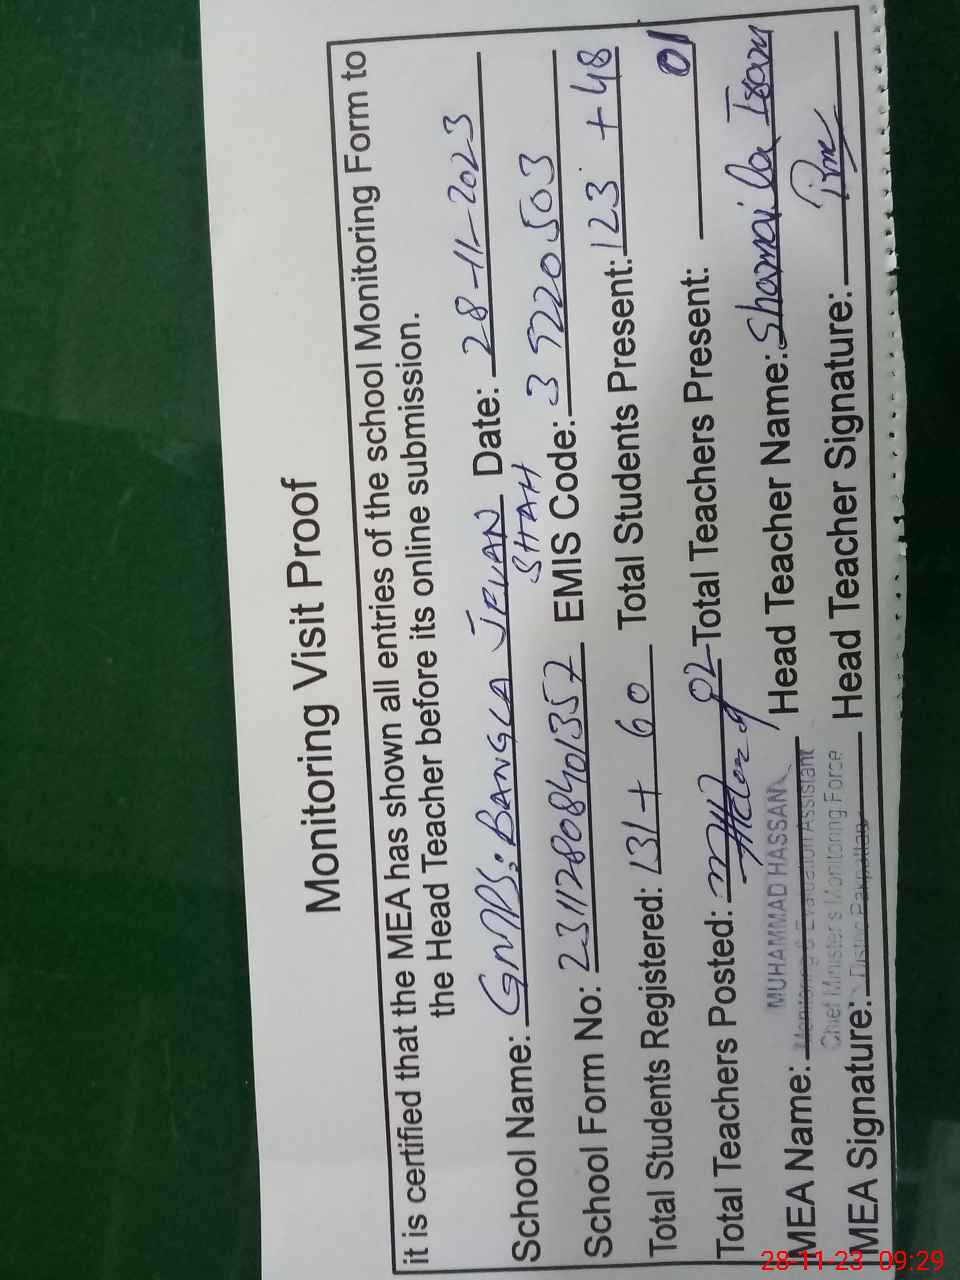 Monitoring Visit Proof
it is certified that the MEA has shown all entries of the school Monitoring Form to
the Head Teacher before its online submission.
School Name: GMPS: BANGLA JEWAN SHAH Date: 28-11-2023
School Form No: 23112808401357 EMIS Code: 39220503
Total Students Registered: 131 + 60 Total Students Present: 123 + 48
Total Teachers Posted: 02 Total Teachers Present: 01
MEA Name: MUHAMMAD HASSAN Head Teacher Name: Sharmaila Iram
Monitoring & Evaluation Assistant
Chief Minister's Monitoring Force
District Pakpattan
MEA Signature: Head Teacher Signature:
28-11-23 09:29